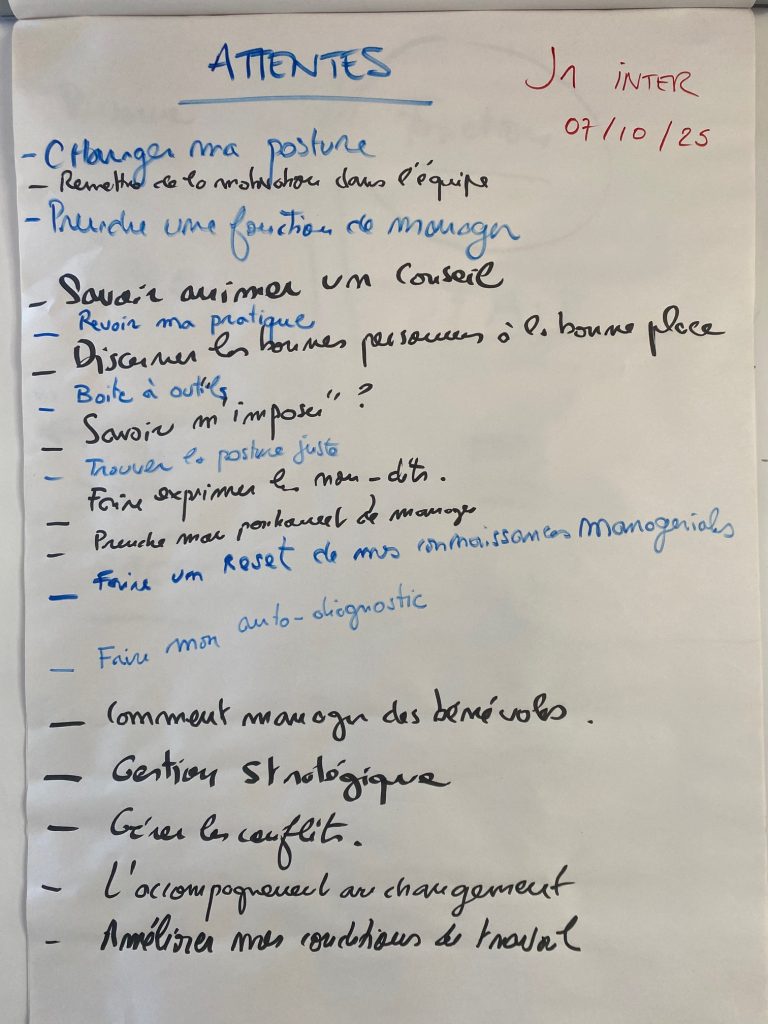 ATTENTES
J1 INTER
07/10/25
- Changer ma posture
- Remettre de la motivation dans l'équipe
- Prendre une fonction de manager
- Savoir animer un Conseil
- Revoir ma pratique
- Discerner les bonnes personnes à la bonne place
- Boite à outils
- Savoir m'"imposer" ?
- Trouver la posture juste
- Faire exprimer les non-dits.
- Prendre mon de manager
- Faire un Reset de mes connaissances manageriales
- Faire mon auto-diagnostic
- Comment manager des bénévoles.
- Gestion Stratégique
- Gérer les conflits.
- L'accompagnement au changement
- Améliorer mes conditions de travail